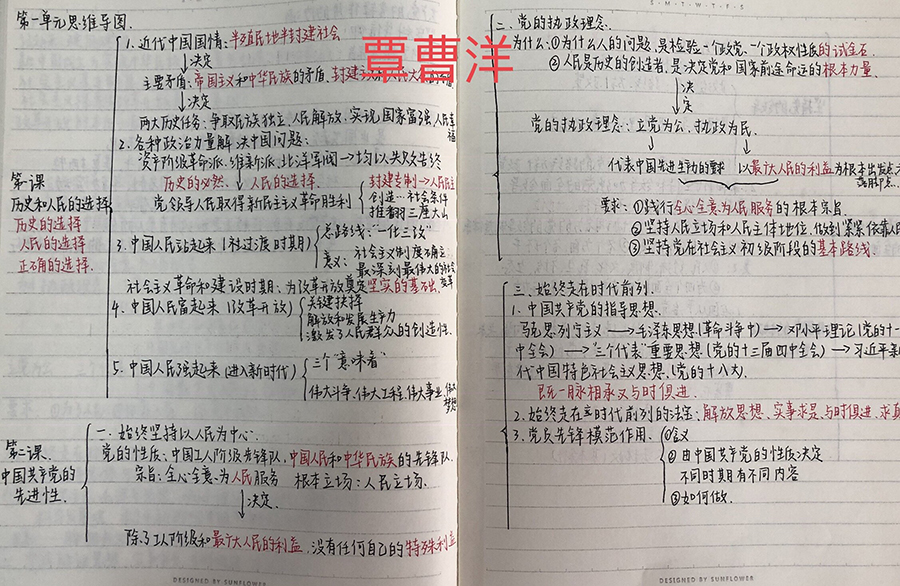 第一单元思维导图.
1. 近代中国国情: 半殖民地半封建社会
决定
主要矛盾: 帝国主义和中华民族的矛盾, 封建
决定
两大历史任务: 争取民族独立、人民解放, 实现国家富强、人民幸福
2. 各种政治力量解决中国问题:
资产阶级革命派、维新派、北洋军阀→均以失败告终
历史的必然、人民的选择.
党领导人民取得新民主主义革命胜利
封建专制→人民民主
创造…社会条件
推翻三座大山
第一课
历史和人民的选择
历史的选择
人民的选择
正确的选择.
3. 中国人民站起来 (和过渡时期)
总路线: "一化三改"
意义: 社会主义制度确立
最深刻最伟大的社会变革
社会主义革命和建设时期: 为改革开放奠定坚实的基础.
4. 中国人民富起来 (改革开放)
关键抉择
解放和发展生产力
激发了人民群众的创造性.
5. 中国人民强起来 (进入新时代)
三个"意味着"
伟大斗争、伟大工程、伟大事业、伟大梦想
第二课.
中国共产党的
先进性.
一. 始终坚持以人民为中心.
党的性质: 中国工人阶级先锋队, 中国人民和中华民族的先锋队.
宗旨: 全心全意为人民服务 根本立场: 人民立场.
决定.
除了工人阶级和最广大人民的利益, 没有任何自己的特殊利益
DESIGNED BY SUNFLOWER
覃曹洋
S M T W T F S
二. 党的执政理念.
为什么: ①为什么人的问题, 是检验一个政党、一个政权性质的试金石.
②人民是历史的创造者, 是决定党和国家前途命运的根本力量.
决
定
党的执政理念: 立党为公、执政为民.
代表中国先进生产力的要求 以最广大人民的利益为根本出发点
落脚点…
要求: ①践行全心全意为人民服务的根本宗旨.
②坚持人民立场和人民主体地位, 做到紧紧依靠人
③坚持党在社会主义初级阶段的基本路线.
三、始终走在时代前列.
1. 中国共产党的指导思想.
马克思列宁主义→毛泽东思想(革命斗争中)→邓小平理论(党的十一
中全会)→"三个代表"重要思想(党的十三届四中全会)→习近平新
代中国特色社会主义思想. (党的十八大).
既一脉相承又与时俱进.
2. 始终走在时代前列的法宝: 解放思想、实事求是、与时俱进、求真
3. 党员先锋模范作用.
①含义
②由中国共产党的性质决定
不同时期有不同内容
③如何做.
DESIGNED BY SUNFLOWER